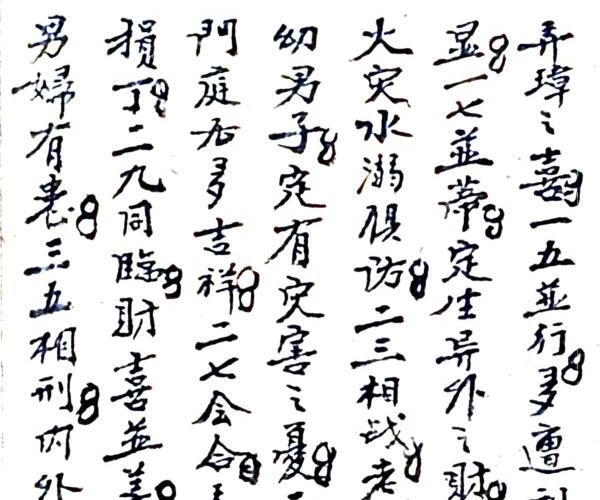 弄璋之喜一五並行多遭
显一七並蒂定生异外之財
火灾水溺俱访二三相战老
幼男子定有灾害之憂
門庭必多吉祥二七会合
損丁二九同臨財喜並
男婦有患三五相刑内外